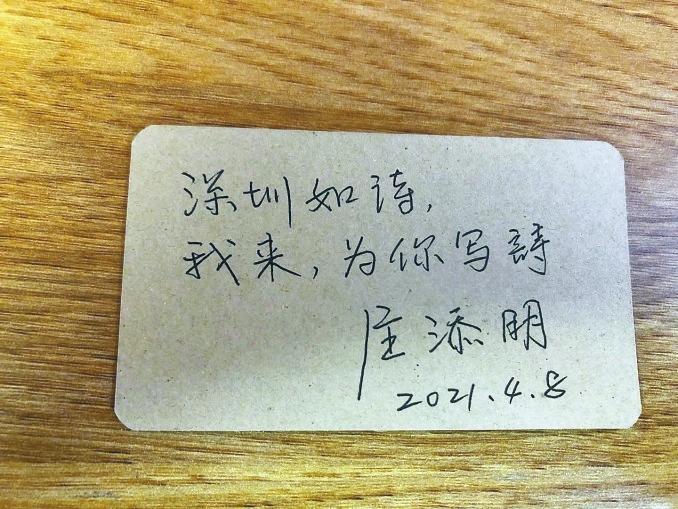 深圳如诗,
我来,为你写詩
庄添明
2021.4.8